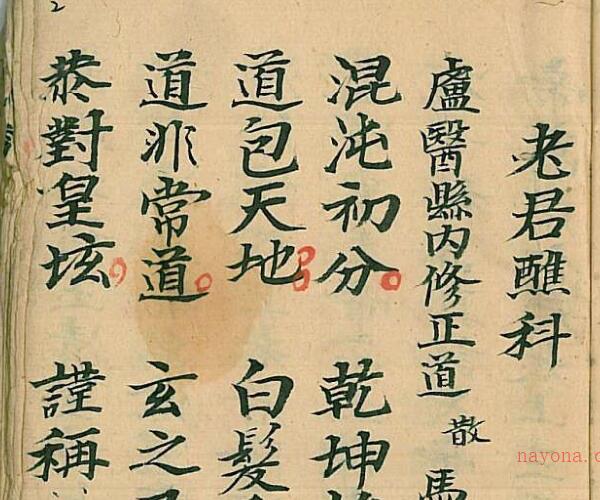 老君醮科
盧醫縣內修正道 散
混沌初分 乾坤
道包天地 白髮
道非常道 玄之
恭對皇坛 謹稱
nayona.cn
2